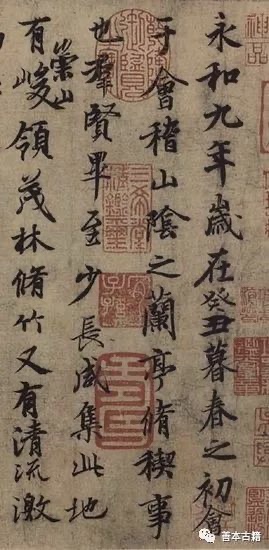 永和九年歲在癸丑暮春之初會
于會稽山陰之蘭亭脩稧事
也羣賢畢至少長咸集此地
有崇山峻領茂林脩竹又有清流激
神品
三希堂精鑒璽
宜子孫
善本古籍